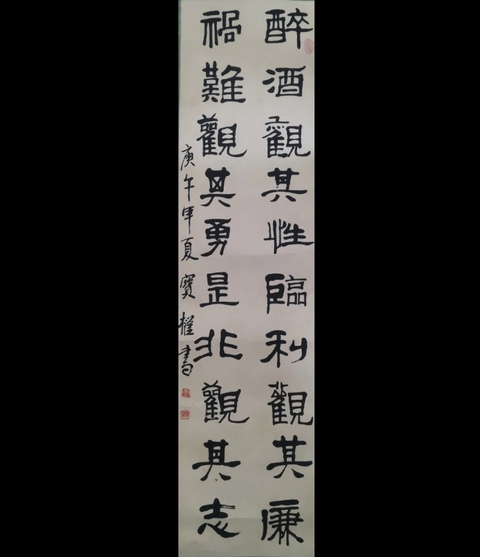 醉酒觀其性臨利觀其廉
禍難觀其勇是非觀其志
庚午年夏寶權書